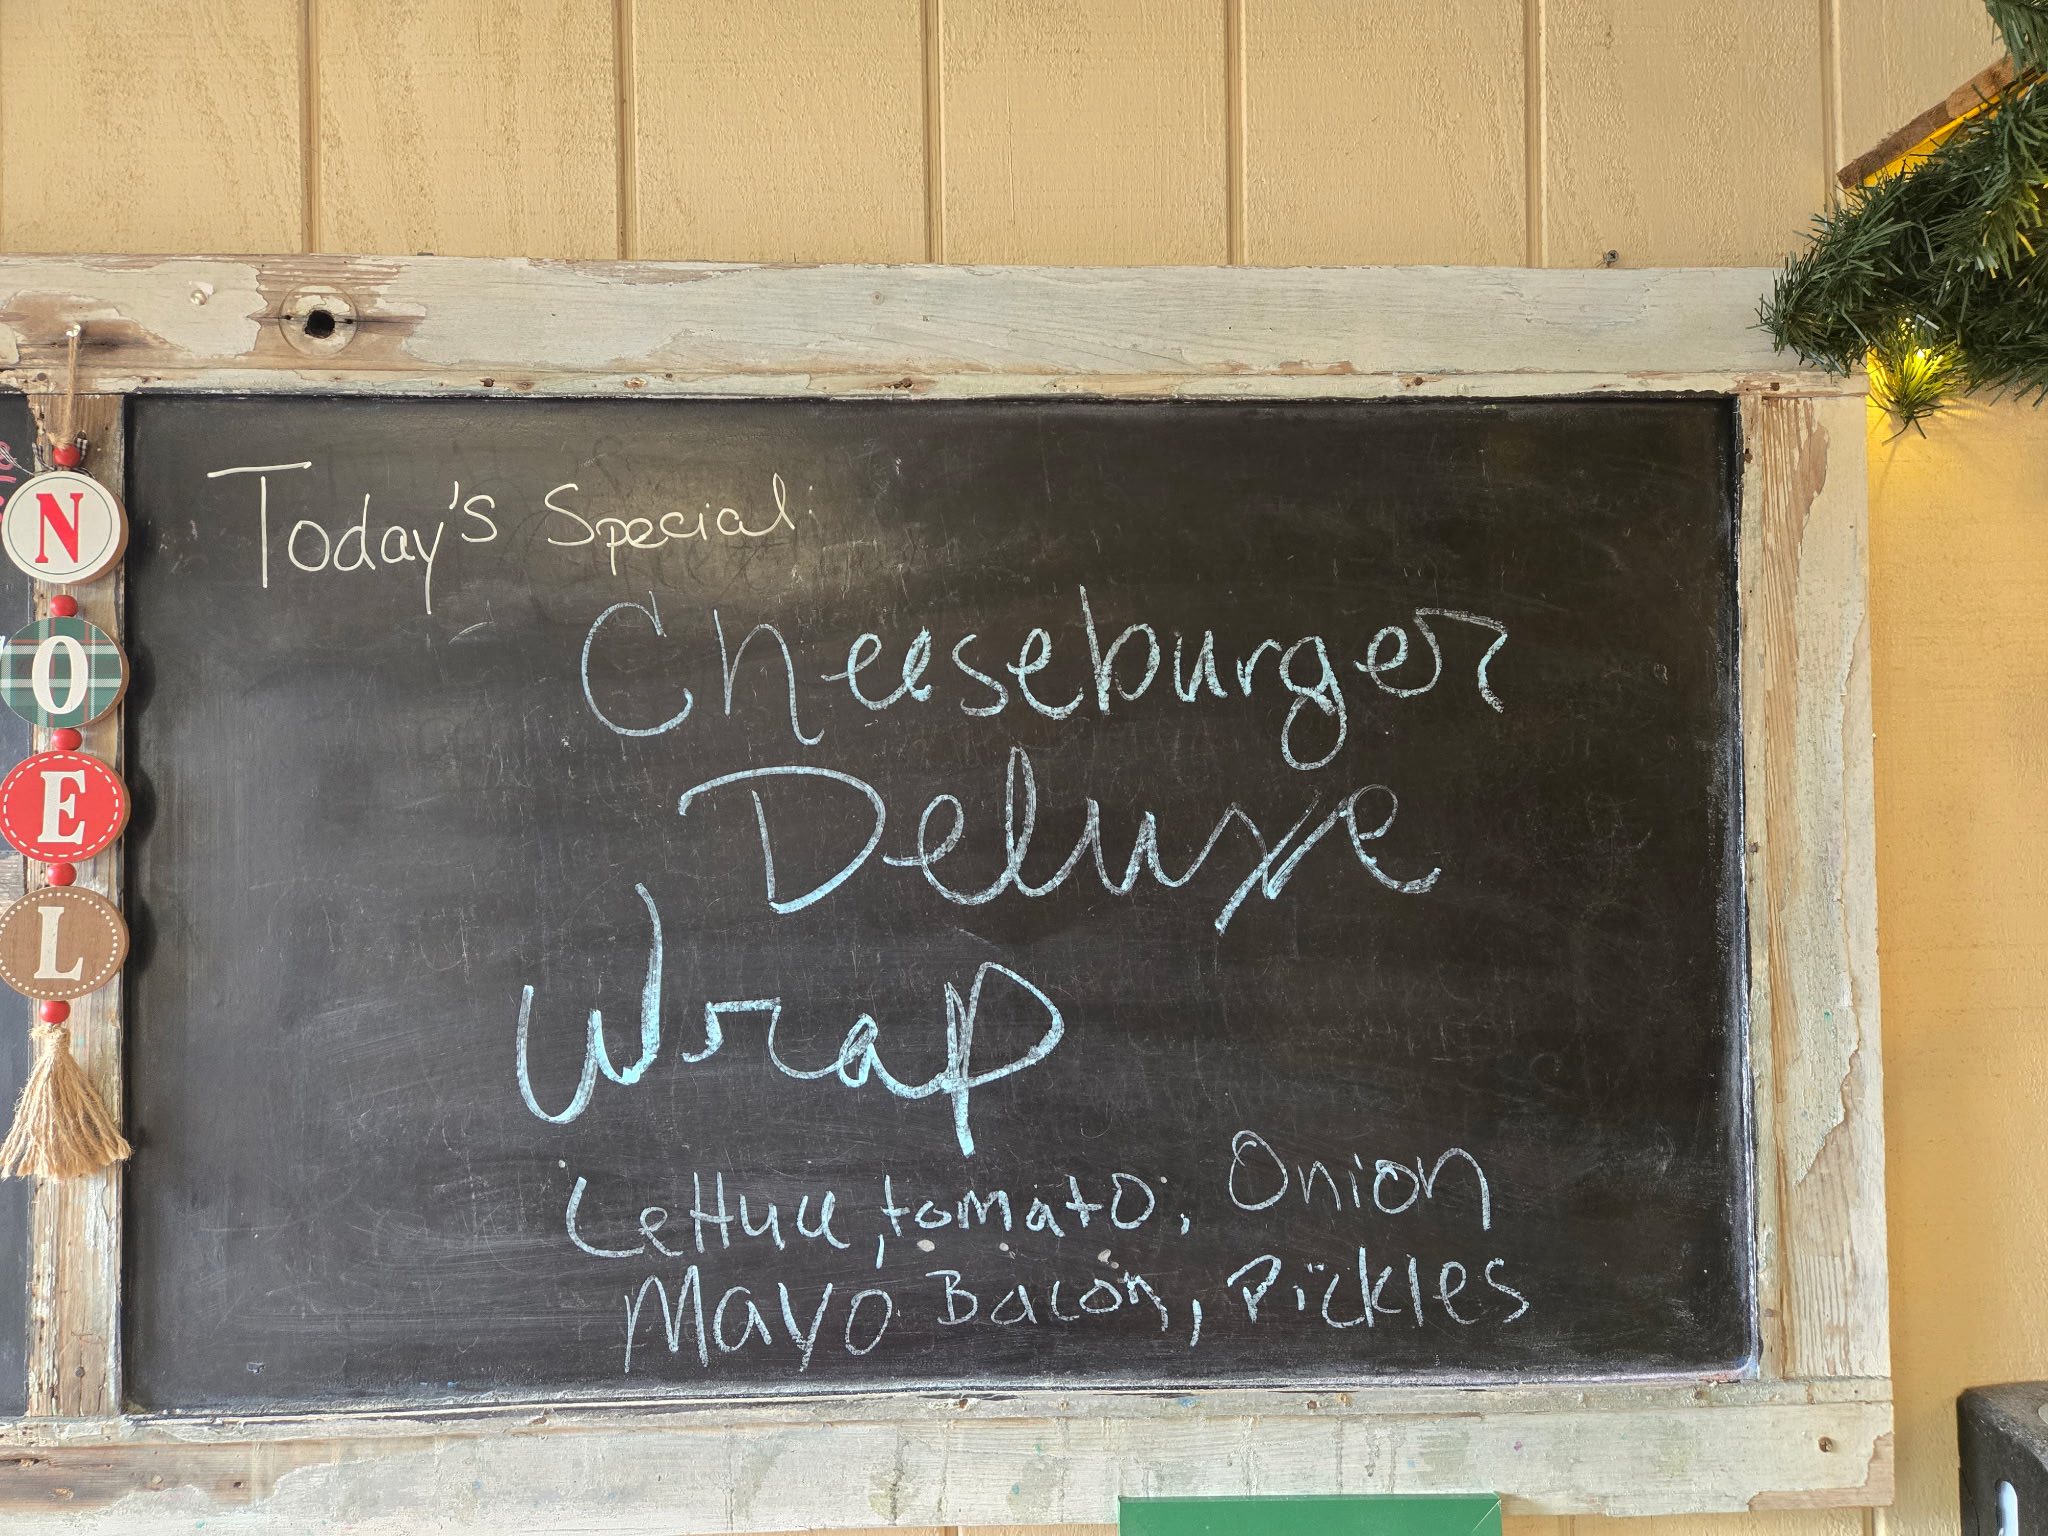 Today's Special:
Cheeseburger
Deluxe
Wrap
Lettuce, tomato, Onion
Mayo Bacon, Pickles
N
O
E
L